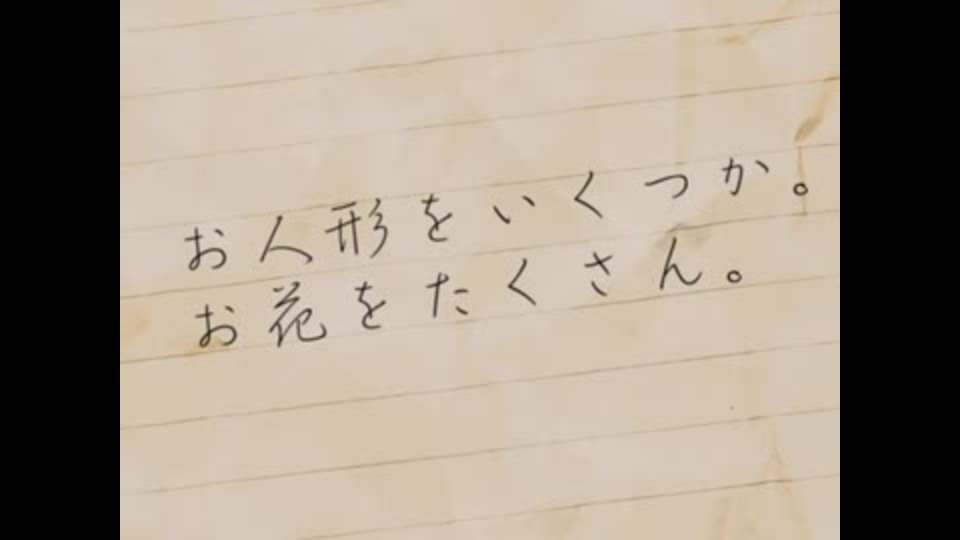 お人形をいくつか。
お花をたくさん。